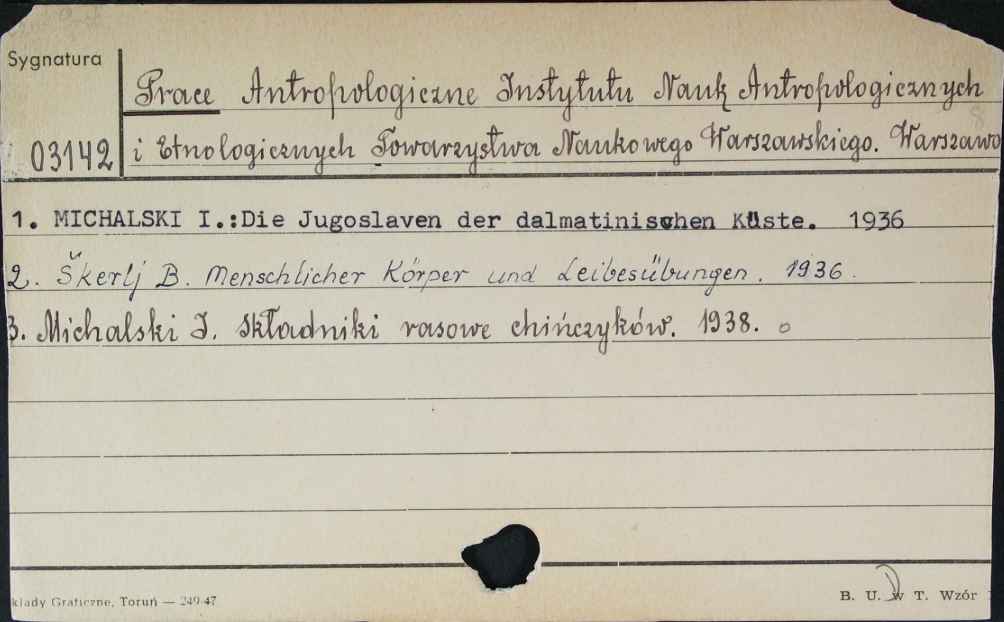 Sygnatura
03142
Prace Antropologiczne Instytutu Nauk Antropologicznych
i Etnologicznych Towarzystwa Naukowego Warszawskiego. Warszawa
1. MICHALSKI I.:Die Jugoslaven der dalmatinischen Küste. 1936
2. Škerlj B. Menschlicher Körper und Leibesübungen. 1936.
3. Michalski I. Składniki rasowe chińczyków. 1938.
kłady Graficzne, Toruń — 249-47
B. U. w T. Wzór